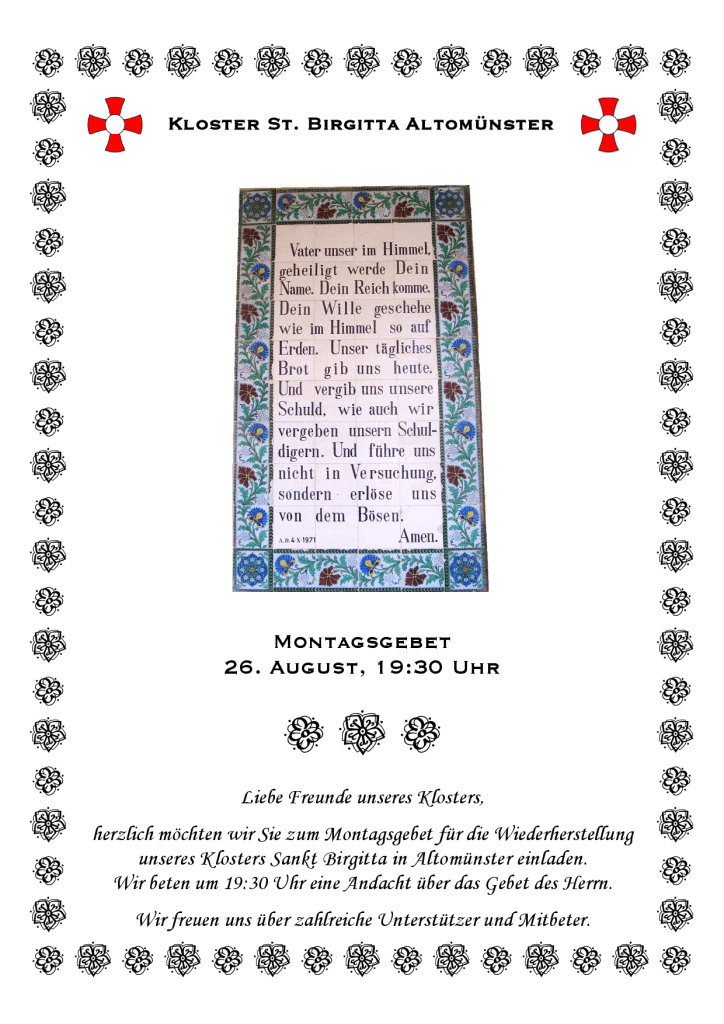 Kloster St. Birgitta Altomünster
Vater unser im Himmel,
geheiligt werde Dein
Name. Dein Reich komme.
Dein Wille geschehe
wie im Himmel so auf
Erden. Unser tägliches
Brot gib uns heute.
Und vergib uns unsere
Schuld, wie auch wir
vergeben unsern Schul-
digern. Und führe uns
nicht in Versuchung,
sondern erlöse uns
von dem Bösen.
A.D. 4 X 1971 Amen.
Montagsgebet
26. August, 19:30 Uhr
Liebe Freunde unseres Klosters,
herzlich möchten wir Sie zum Montagsgebet für die Wiederherstellung
unseres Klosters Sankt Birgitta in Altomünster einladen.
Wir beten um 19:30 Uhr eine Andacht über das Gebet des Herrn.
Wir freuen uns über zahlreiche Unterstützer und Mitbeter.